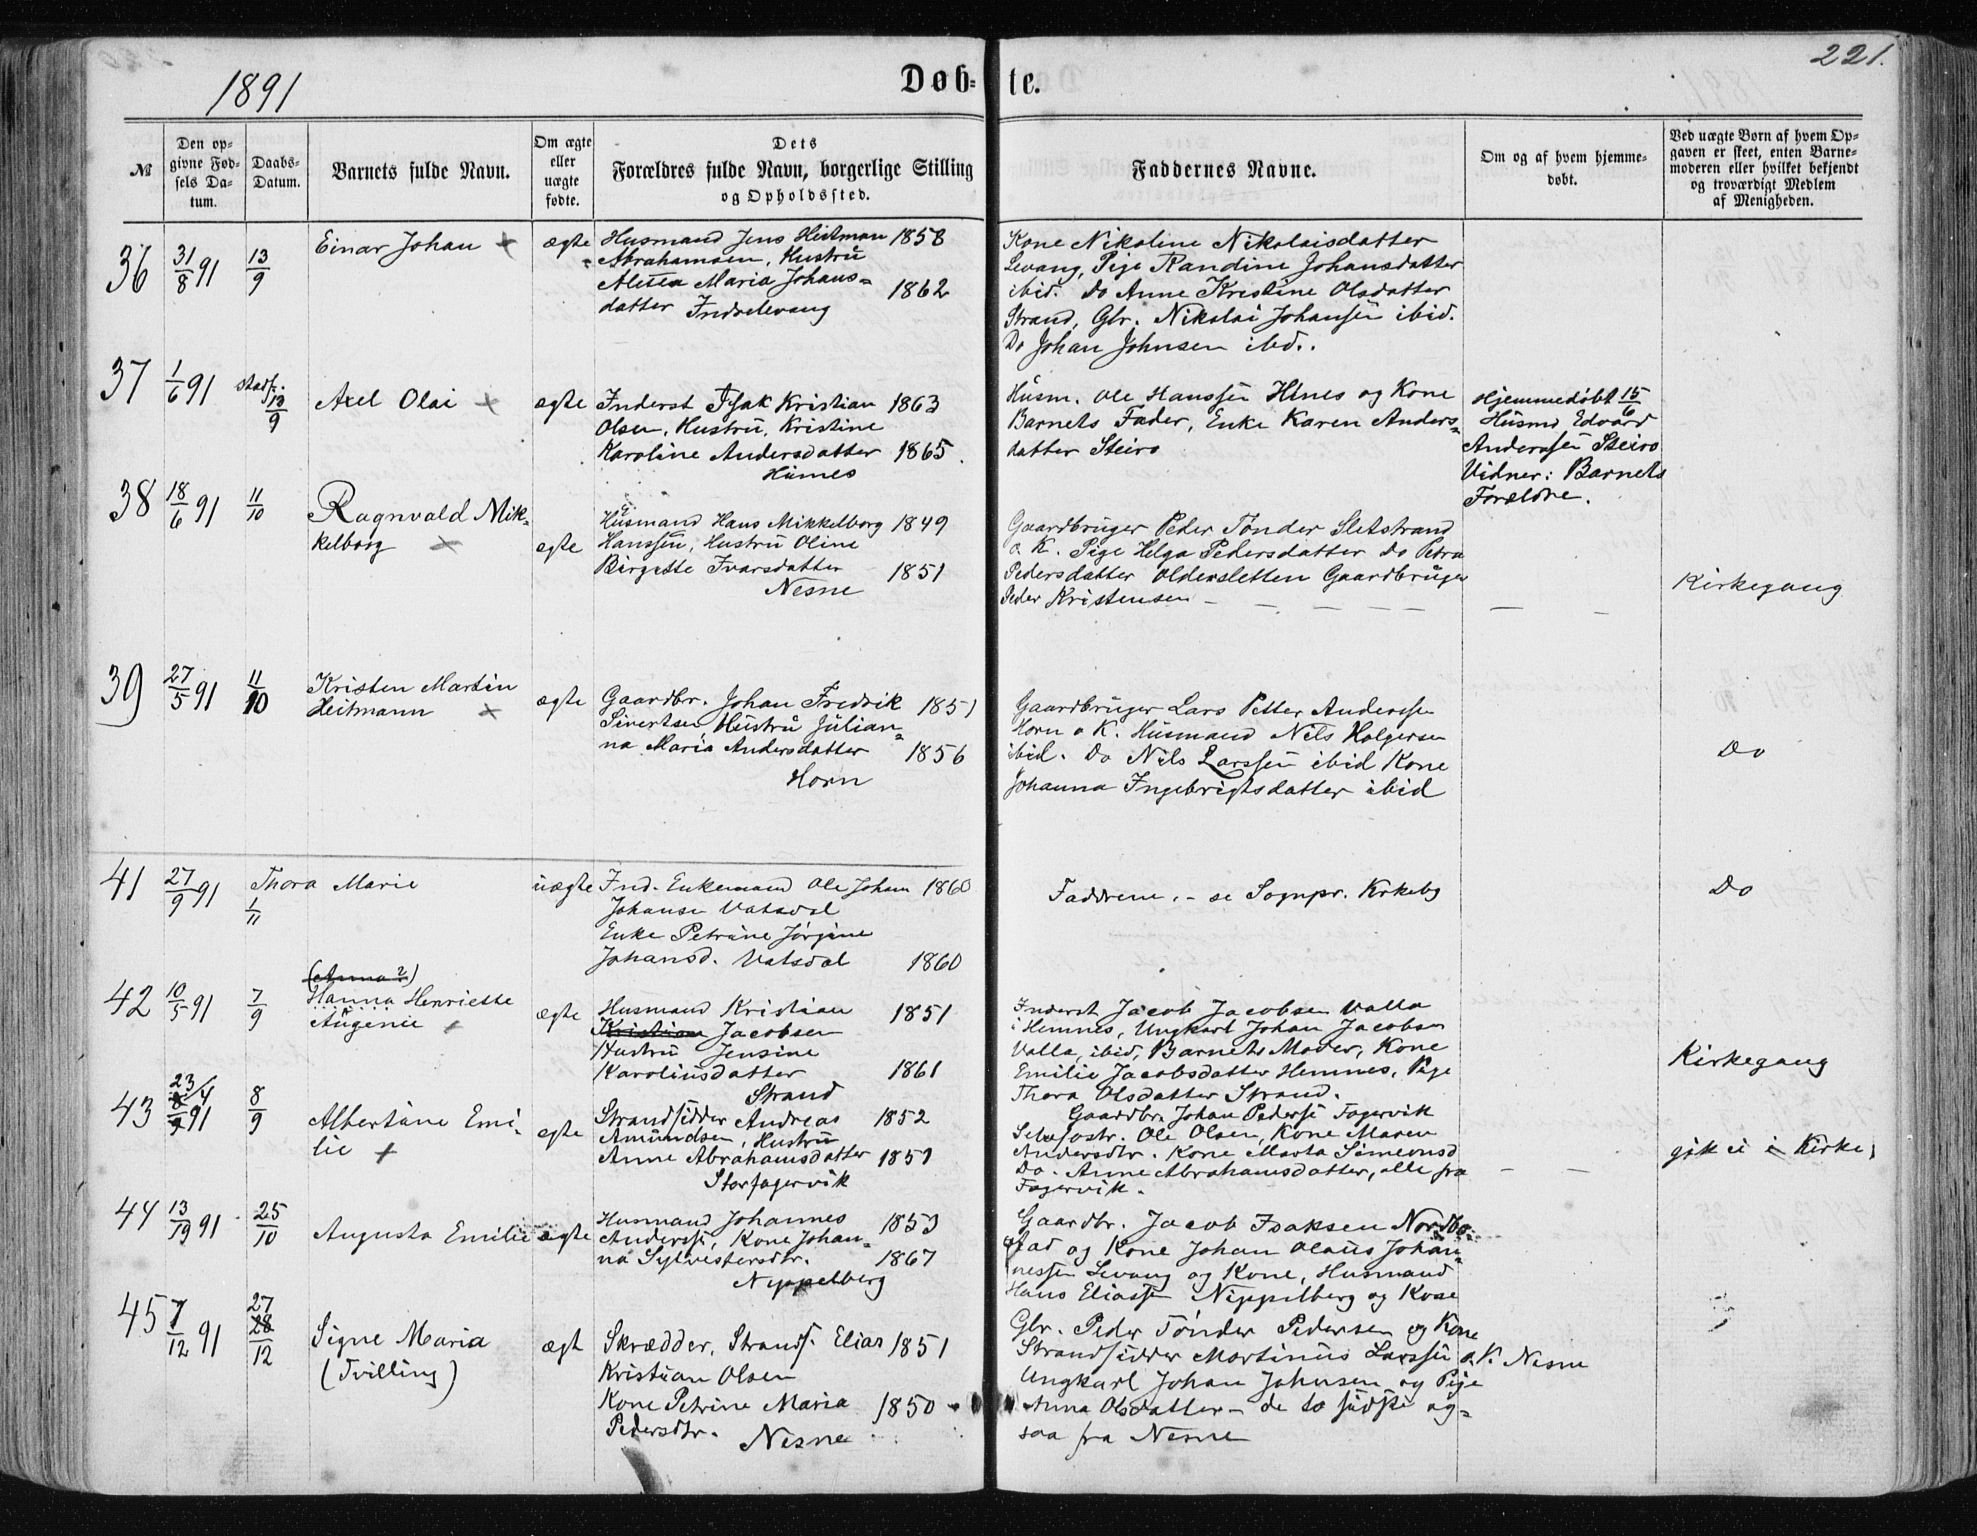 1891
Døb-
te.
221.
№
Den op-
givne Fød-
sels Da-
tum.
Daabs-
Datum.
Barnets fulde Navn.
Om ægte
eller
uægte
fødte.
Dets
Forældres fulde Navn, borgerlige Stilling
og Opholdssted.
Faddernes Navne.
Om og af hvem hjemme-
døbt.
Ved uægte Børn af hvem Op-
gaven er skeet, enten Barne-
moderen eller hvilket bekjendt
og troværdigt Medlem
af Menigheden.
36 31/8 91 13/9
Einar Johan +
ægte
Husmand Jens Heitman 1858
Abrahamsen, Hustru
Maria Johans= 1862
datter
Kone Nikoline Nikolaisdatter
Levang, Pige Randine Johansdatter
ibid. Do Anne Kristine Olsdatter
Strand, Gbr. Nikolai Johansen ibid.
Do Johan Johnsen ibd..
37 1/6 91 stadf. 13/9
Axel Olai +
ægte
Inderst Isak Kristian 1863
Olsen, Hustru, Kristine
Karoline Andersdatter 1865.
Husm. Ole Hanssen Hines og Kone
Barnets Fader, Enke Karen Anders=
datter Steiro
Hjemmedøbt 15/6
Husmd Edvard
Anderssen Steiro
Vidner: Barnets
Forældre.
38 18/6 91 11/10
Ragnvald Mik-
kelborg +
ægte
Husmand Hans Mikkelborg 1849
Hanssen, Hustru Oline
Birgitte Ivarsdatter 1851
Nesne
Gaardbruger Peder Tønder Sletstrand
o K. Pige Helga Pedersdatter Do Petra
Pedersdatter Oldersletten Gaardbruger
Peder Kristensen - - - - - - -
Kirkegang
39 27/5 91 11/10
Kristen Martin
Heitmann +
ægte
Gaardbr. Johan Fredrik 1851
Sivertsen, Hustru Julian=
na Maria Andersdatter 1856
Horn
Gaardbruger Lars Petter Anderssen
Horn o K. Husmand Nils Holgersen
ibid. Do Nils Larssen ibid Kone
Johanna Ingebrigtsdatter ibid
Do
41 27/9 91 1/11
Thora Marie
uægte
Ind. Enkemand Ole Johan 1860
Johanse Vatsdal
Enke Petrine Jørgine
Johansd. Vatsdal 1860
Faddrene. - se Sognpr. Kirkebg
Do
42 10/5 91 7/9
(Anna?)
Hanna Henriette
Augenie +
ægte
Husmand Kristian 1851
Kristian Jacobsen
Hustru Jensine
Karoliusdatter 1861
Strand
Inderst Jacob Jacobsen Valla
i Hemnes, Ungkarl Johan Jacobsen
Valla, ibid, Barnets Moder, Kone
Emilie Jacobsdatter Hemnes, Pige
Thora Olsdatter Strand.
Kirkegang
43 23/4 8/9 91 8/9
Albertine Emi-
lie +
ægte
Strandsidder Andreas 1852
Amundsen, Hustru
Anne Abrahamsdatter 1851
Storfagervik
Gaardbr. Johan Pederse Fagervik
Selvfostr. Ole Olsen, Kone Maren
Andersdtr. Kone Marta Simeonsd
Do. Anne Abrahamsdatter, alle fra
Fagervik.
gik ei i Kirke,
44 13/19 91 25/10
Augusta Emilie
ægte
Husmand Johannes 1853
Anderss, Kone Johan=
na Sylvestersdtr. 1867
Nyppelberg
Gaardbr. Jacob Isaksen Nordbo-
stad og Kone Johan Olaus Johan=
nessen Levang og Kone, Husmand
Hans Eliasse Nippelberg og Kone
45 7/12 91 27 28/12
Signe Maria
(Tvilling)
ægt
Skrædder, Strands. Elias 1851
Kristian Olsen
Kone Petrine Maria 1850
Pedersdtr.
Nesne
Gbr. Peder Tønder Pedersen og Kone
Strandsidder Martinus Larssen o.K. Nesne
Ungkarl Johan Johnsen og Pige
Anna Olsdatter - de to sidste og=
saa fra Nesne